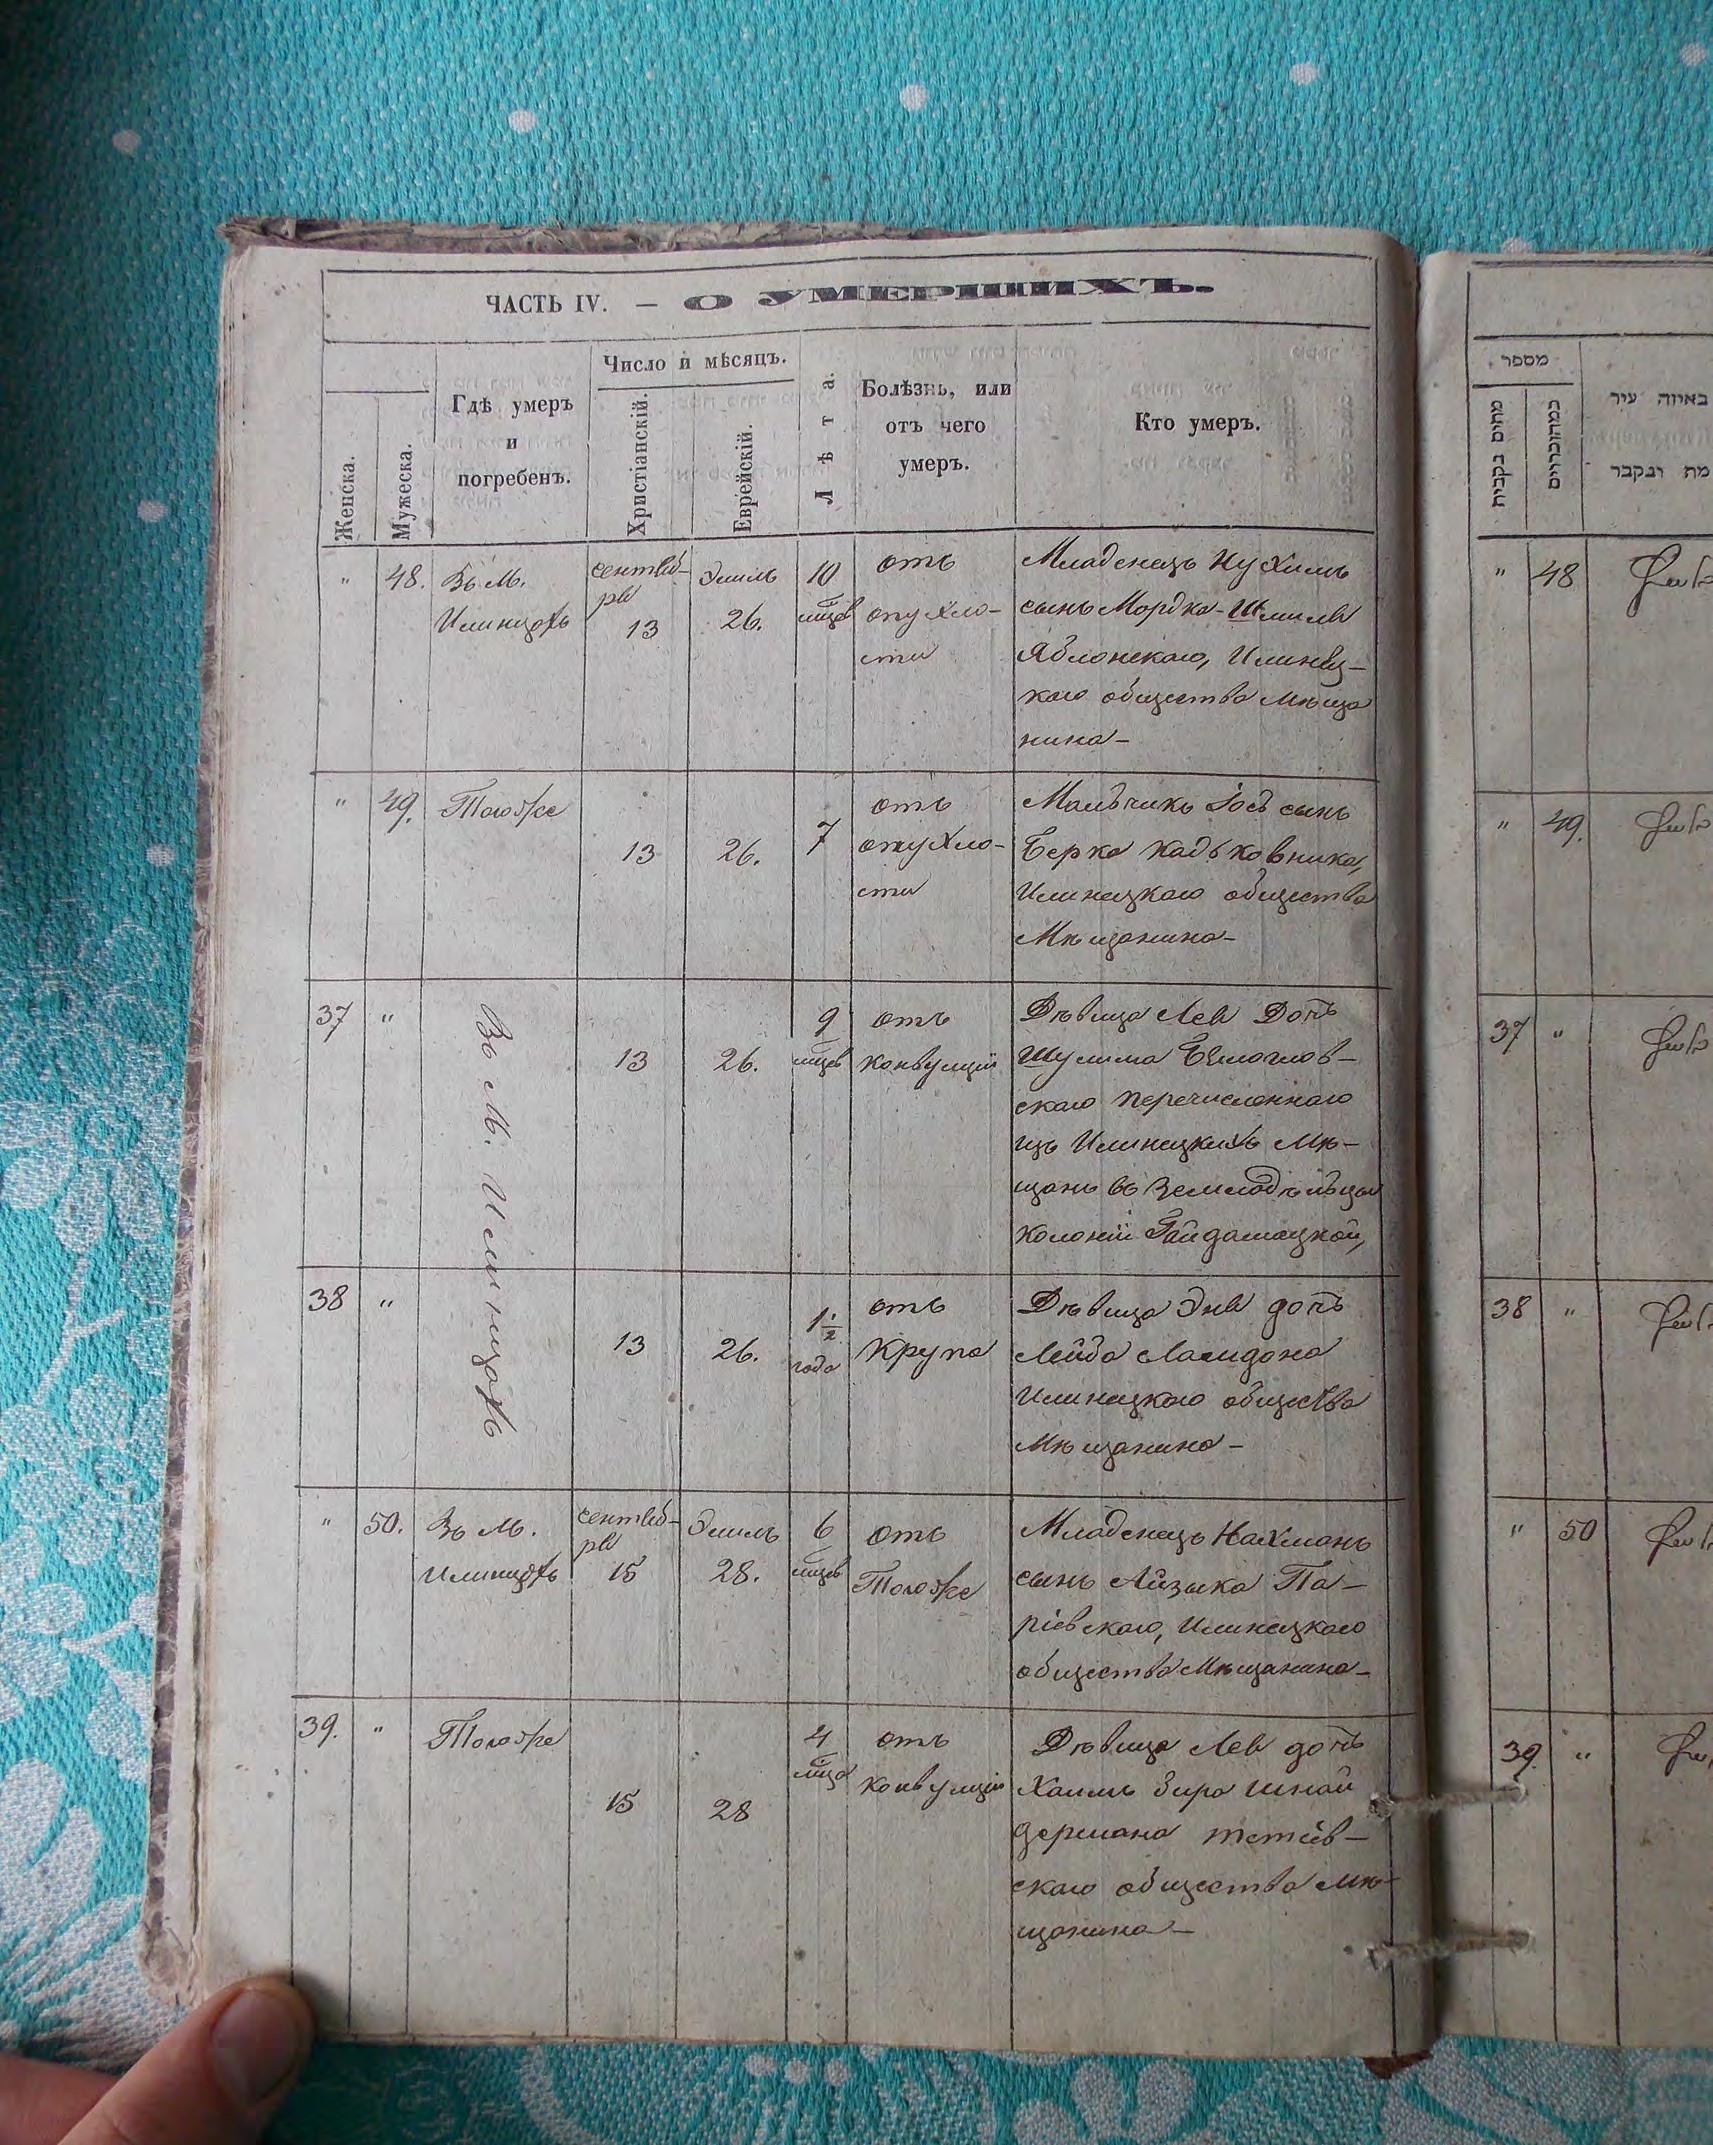 ЧАСТЬ IV. — О УМЕРШИХЪ.
Женска.
Мужеска.
Гдѣ умеръ
и
погребенъ.
Число и мѣсяцъ.
Христіанскій.
Еврейскій.
Лѣта.
Болѣзнь, или
отъ чего
умеръ.
Кто умеръ.
" 48. Въ М.
Илинцахъ
сентяб-
ря
13
Элиль
26.
10
мцевъ
отъ
опухло-
сти
Младенецъ Нухимъ
сынъ Мордка-Шмиля
Яблонскаго, Илинец-
каго общества Мѣща
нина-
" 49. Тоже
13
26.
7
отъ
опухло-
сти
Мальчикъ Іось сынъ
Берка Кадьковника,
Илинецкаго общества
Мѣщанина-
37 "
Въ М. Илинцахъ
13
26.
9
мцевъ
отъ
конвулціи
Дѣвица Лея Дочь
Шулима
скаго перечисленнаго
изъ Илинецкихъ Мѣ-
щанъ въ Земледѣльцы
Колоніи Гайдамацкой,
38 "
13
26.
1 1/2
года
отъ
Крупа
Дѣвица Эня дочь
Лейба
Илинецкаго общества
Мѣщанина-
" 50. Въ М.
Илинцахъ
сентяб-
ря
15
Элиль
28.
6
мцевъ
отъ
Тогоже
Младенецъ Нахманъ
сынъ Айзыка Па-
ріевскаго, Илинецкаго
общества Мѣщанина-
39. " Тогоже
15
28
4
мца
отъ
конвулціи
Дѣвица Лея дочь
Хаимъ Зира Шнай
дермана тетіев-
скаго общества Мѣ-
щанина-
מספר
מתים נקבות
באיזה עיר
מת ונקבר
" 48
" 49.
37 "
38 "
" 50
39. "